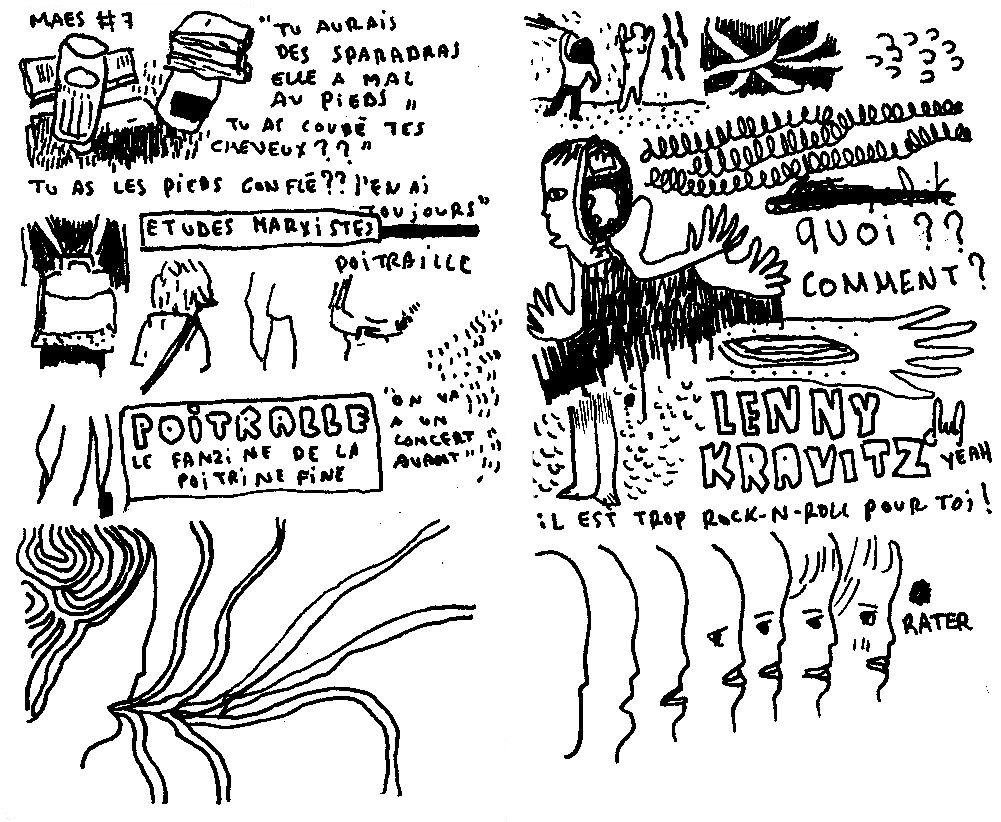 MAES #7
"TU AURAIS
DES SPARADRAS
ELLE A MAL
AU PIEDS "
TU AS COUPÉ TES
CHEVEUX ?? "
TU AS LES PIEDS GONFLÉ ?? J'EN AI
TOUJOURS"
ETUDES MARXISTES
POITRAILLE
POITRALLE
LE FANZINE DE LA
POITRINE FINE
"ON VA
A UN
CONCERT
AVANT"
QUOI ??
COMMENT ?
LENNY
KRAVITZ
YEAH
IL EST TROP ROCK-N-ROLL POUR TOI !
RATER